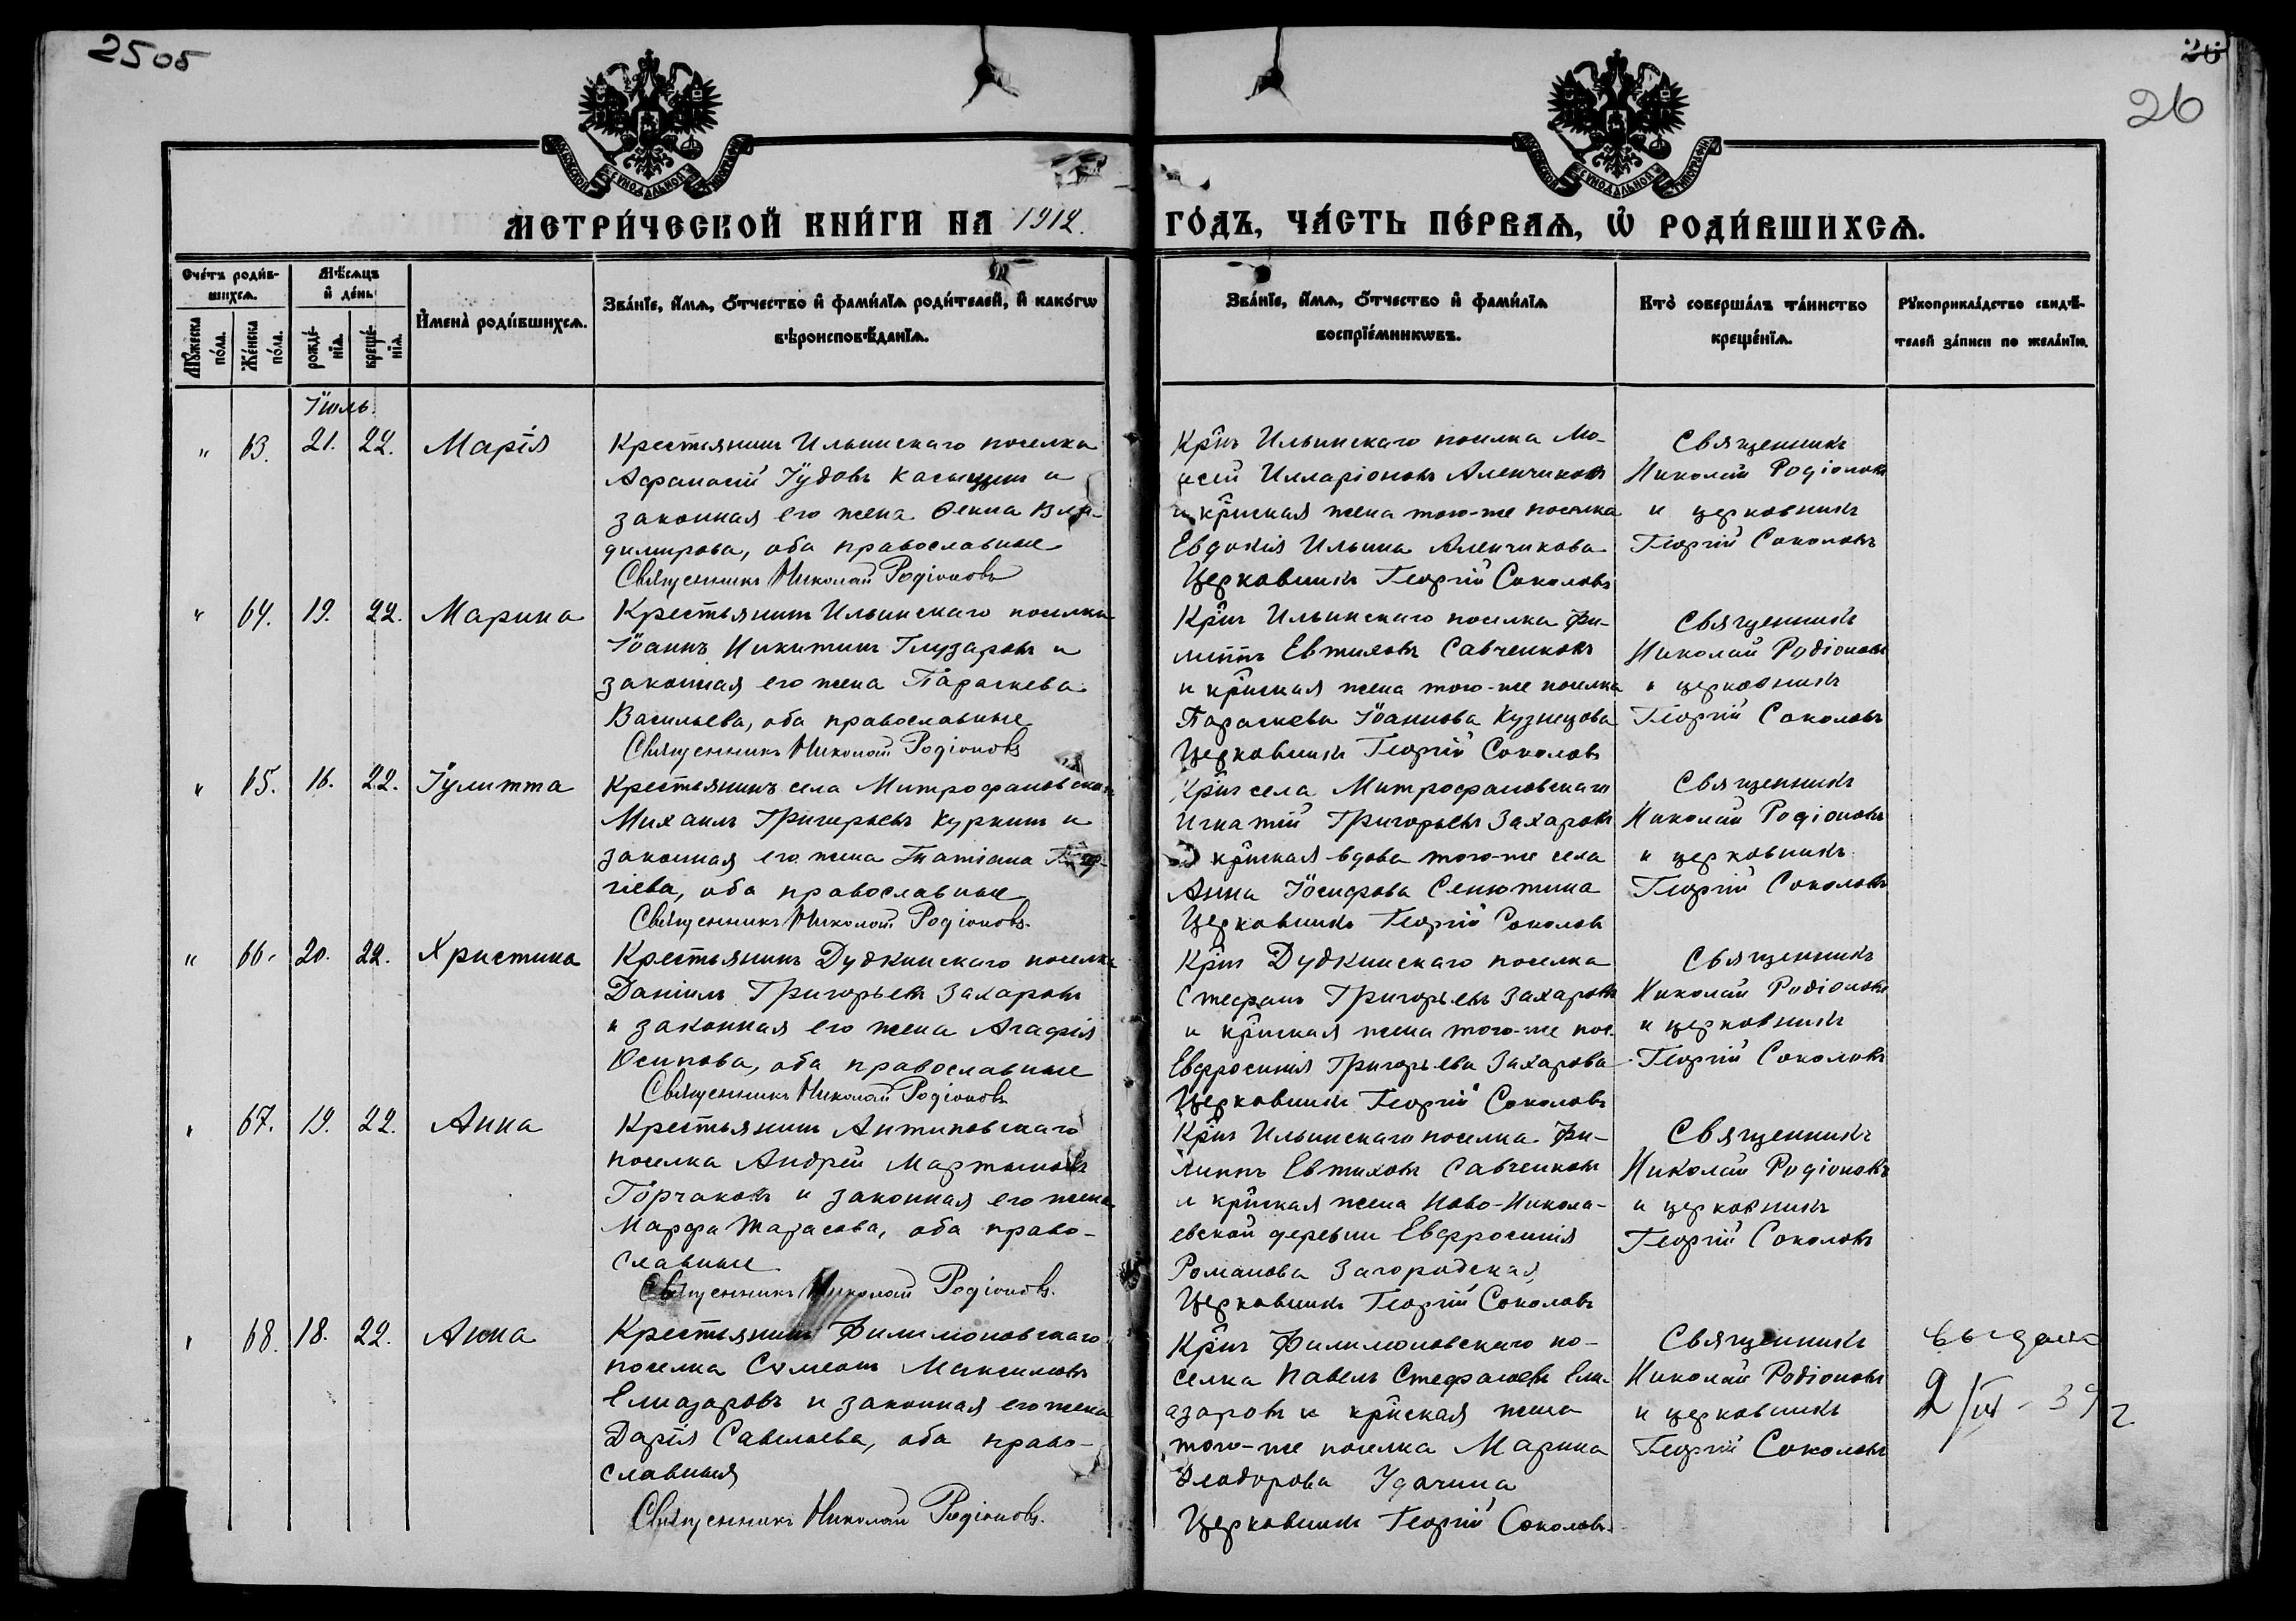 2505
20
26
МЕТРИ́ЧЕСКОЙ КНИ́ГИ НА 1912. ГО́ДЪ, ЧА́СТЬ ПЕ́РВАѦ, Ѡ҆ РОДИ́ВШИХСѦ.
Сче́тъ роди́в-
шихсѧ.
Мꙋ́жеска по́ла.
Же́нска по́ла.
Мѣ́сѧцъ
и҆ де́нь
рожде́-
нїѧ.
креще́-
нїѧ.
И҆мена̀ роди́вшихсѧ.
Зва́нїе, и҆́мѧ, ѻ҆́тчество и҆ фами́лїѧ роди́телей, и҆ како́гѡ
вѣроисповѣ́данїѧ.
Зва́нїе, и҆́мѧ, ѻ҆́тчество и҆ фами́лїѧ
воспрїе́мникѡвъ.
Кто̀ соверша́лъ та́инство
креще́нїѧ.
Рꙋкоприкла́дство свидѣ́-
телей за́писи по жела́нїю.
Іюль
" 63. 21. 22. Марія
Крестьянинъ Ильинскаго поселка
Афанасій Іудовъ и
законная его жена Фекла Вла-
димирова, оба православные
Священникъ Николай Родіоновъ
Кр̃нъ Ильинскаго поселка Мо-
исей Илларіоновъ Аленчиковъ
и кр̃нская жена того-же поселка
Евдокія Ильина Аленчикова
Церковникъ Георгій Соколовъ
Священникъ
Николай Родіоновъ
и церковникъ
Георгій Соколовъ
" 64. 19. 22. Марина
Крестьянинъ Ильинскаго поселка
Іоаннъ Никитинъ Глузаровъ и
законная его жена Параскева
Васильева, оба православные
Священникъ Николай Родіоновъ
Кр̃нъ Ильинскаго поселка Фи-
липпъ Евтиховъ Савченковъ
и кр̃нская жена того-же поселка
Параскева Іоаннова Кузнецова
Церковникъ Георгій Соколовъ
Священникъ
Николай Родіоновъ
и церковникъ
Георгій Соколовъ
" 65. 16. 22. Іулитта
Крестьянинъ села Митрофановскаго
Михаилъ Григорьевъ Куркинъ и
законная его жена Татіана
гіева, оба православные
Священникъ Николай Родіоновъ.
Кр̃нъ села Митрофановскаго
Игнатій Григорьевъ Захаровъ
и кр̃нская вдова того-же села
Анна Іосифова Сенютина
Церковникъ Георгій Соколовъ
Священникъ
Николай Родіоновъ
и церковникъ
Георгій Соколовъ
" 66. 20. 22. Христина
Крестьянинъ Дудкинскаго поселка
Даніилъ Григорьевъ Захаровъ
и законная его жена Агафія
Осипова, оба православные
Священникъ Николай Родіоновъ
Кр̃нъ Дудкинскаго поселка
Стефанъ Григорьевъ Захаровъ
и кр̃нская жена того-же пос.
Евфросинія Григорьева Захарова
Церковникъ Георгій Соколовъ
Священникъ
Николай Родіоновъ
и церковникъ
Георгій Соколовъ
" 67. 19. 22. Анна
Крестьянинъ Антиповскаго
поселка Андрей Мартыновъ
Горчаковъ и законная его жена
Марфа Тарасова, оба право-
славные
Священникъ Николай Родіоновъ.
Кр̃нъ Ильинскаго поселка Фи-
липпъ Евтиховъ Савченковъ
и кр̃нская жена Ново-Никола-
евской деревни Евфросинія
Романова Загородская
Церковникъ Георгій Соколовъ
Священникъ
Николай Родіоновъ
и церковникъ
Георгій Соколовъ
" 68. 18. 22. Анна
Крестьянинъ Филимоновскаго
поселка Сѵмеонъ Максимовъ
Елиазаровъ и законная его жена
Дарія Савельева, оба право-
славныя
Священникъ Николай Родіоновъ.
Кр̃нъ Филимоновскаго по-
селка Павелъ Стефановъ Ели-
азаровъ и кр̃нская жена
того-же поселка Марина
Ѳеодорова Удачина
Церковникъ Георгій Соколовъ.
Священникъ
Николай Родіоновъ
и церковникъ
Георгій Соколовъ
выдана